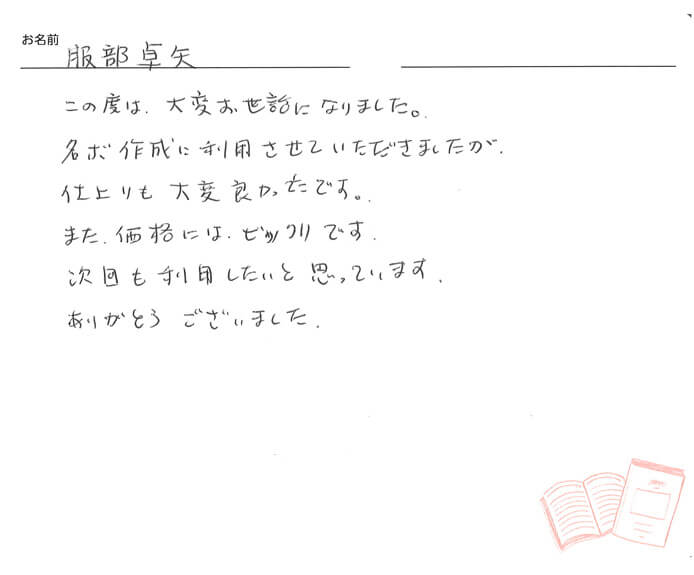 お名前 服部卓矢
この度は、大変お世話になりました。
名ボ作成に利用させていただきましたが、
仕上りも大変良かったです。
また、価格には、ビックリです。
次回も利用したいと思っています。
ありがとうございました。